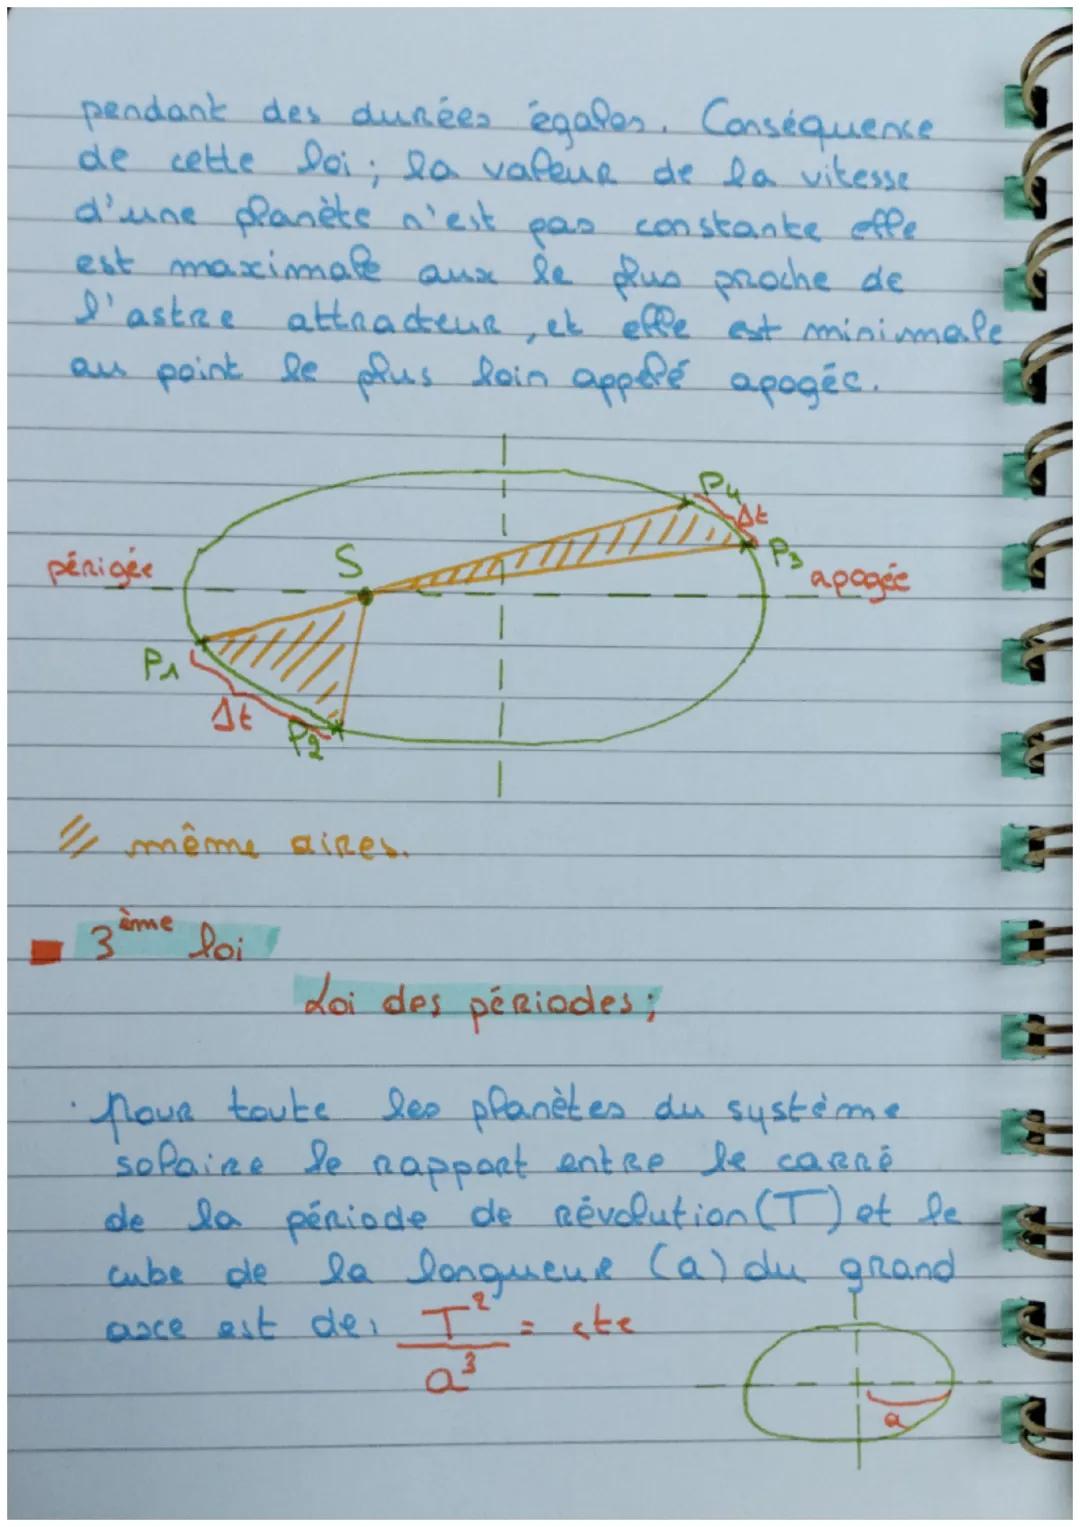 pendant des durées égales. Conséquence
de cette loi ; la valeur de la vitesse
d'une planète n'est pas constante elle
est maximale aux le plus proche de
l'astre attracteur, et elle est minimale
au point le plus loin appelé apogée.
P4
Δt
périgée
S
P3
apogée
P1
Δt
P2
même aires.
3ème loi
Loi des périodes ;
· Pour toute les planètes du système
solaire le rapport entre le carré
de la période de révolution (T) et le
cube de la longueur (a) du grand
axe est de : T²/a³ = cte
a